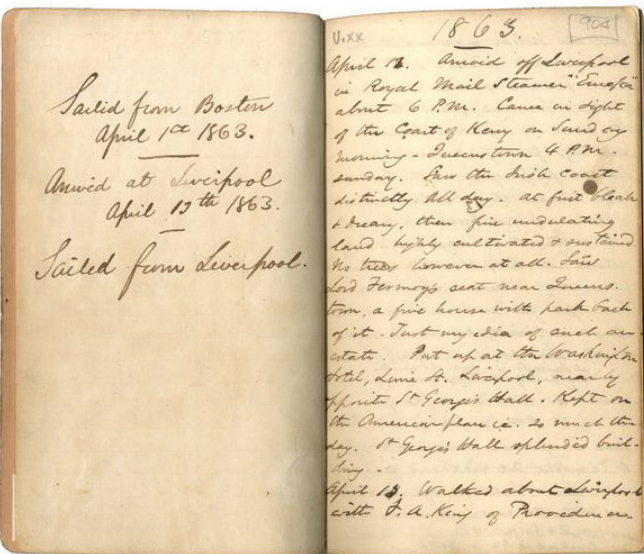 Sailed from Boston
April 1st 1863.
Arrived at Liverpool
April 13th 1863.
Sailed from Liverpool.
V.xx
1863.
904
April 12. Arrived off Liverpool
in Royal Mail Steamer "Europa
about 6 P.M. Came in sight
of the Coast of Kerry on Sunday
morning - Queenstown 4 P.M.
Sunday. Saw the Irish Coast
distinctly all day. at first bleak
& dreary, then fine undulating
land highly cultivated &
No trees however at all. Saw
Lord Fermoy's seat near Queens.
town, a fine house with park back
of it. Just my idea of such an
estate. Put up at the Washington
Hotel, Lime St. Liverpool, nearly
opposite St George's Hall. Kept on
the American plan i.e. so much the
day. St George's Hall splendid buil-
ding
April 13. Walked about Liverpool
with F. A. King of Providence